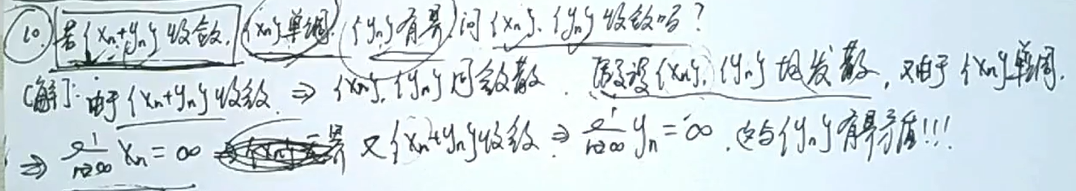 10. 若{xₙ+yₙ}收敛,{xₙ}单调,{yₙ}有界,问{xₙ},{yₙ}收敛吗?
[解]:由于{xₙ+yₙ}收敛 ⇒ {xₙ},{yₙ}同敛散. 假设{xₙ},{yₙ}均发散,又由于{xₙ}单调.
⇒ lim n→∞ xₙ=∞ 又{xₙ+yₙ}收敛 ⇒ lim n→∞ yₙ=∞,这与{yₙ}有界矛盾!!!